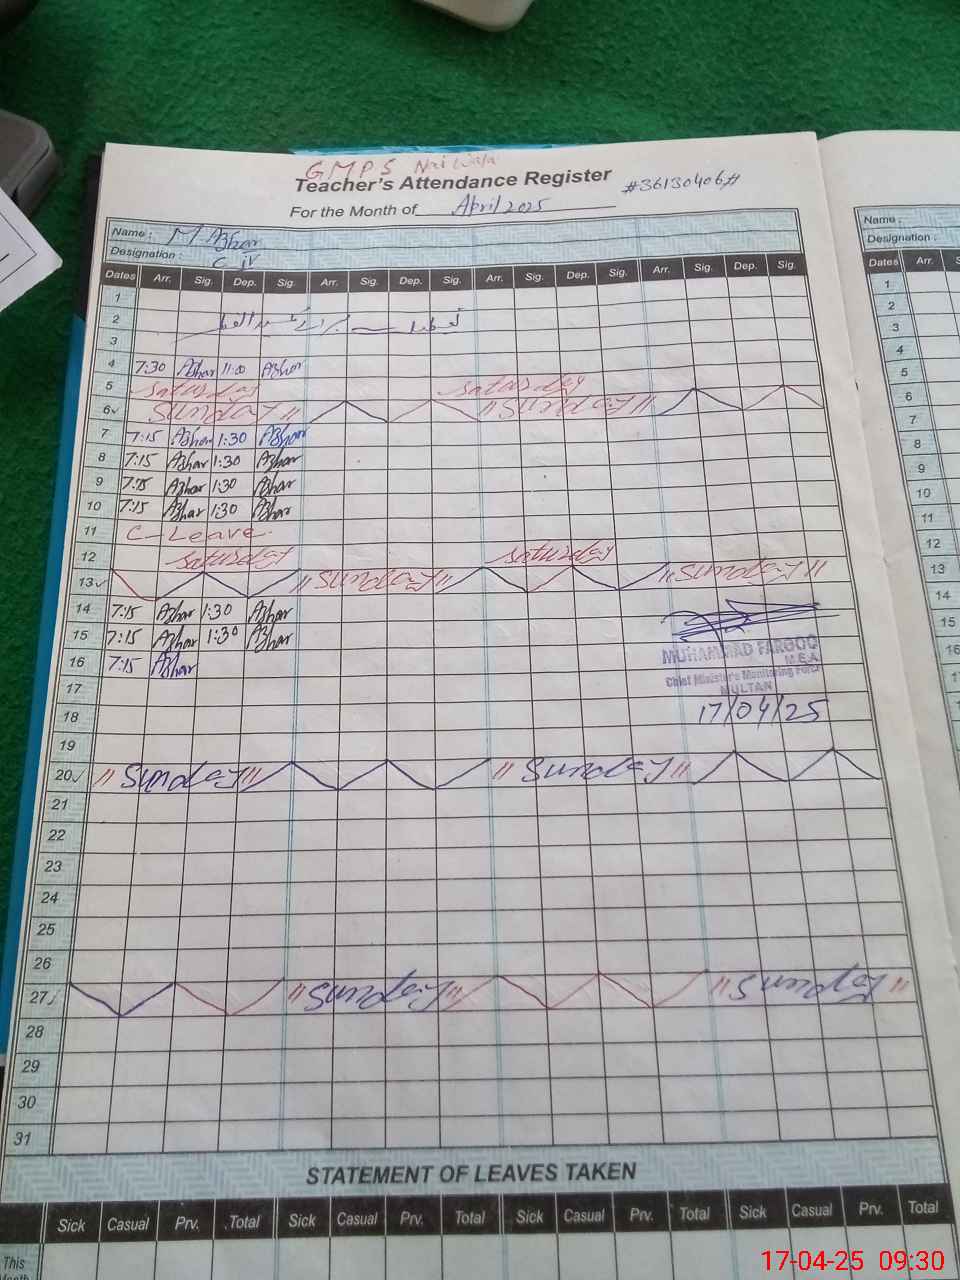 GMPS Nai Wala
Teacher's Attendance Register #36130406#
For the Month of April 2025
Name : M. Azhar
Designation : C IV
Dates Arr. Sig. Dep. Sig. Arr. Sig. Dep. Sig. Arr. Sig. Dep. Sig. Arr. Sig. Dep. Sig.
1
2
3
4 7:30 Azhar 11:00 Azhar
5 Saturday Saturday
6 "Sunday" "Sunday"
7 7:15 Azhar 1:30 Azhar
8 7:15 Azhar 1:30 Azhar
9 7:15 Azhar 1:30 Azhar
10 7:15 Azhar 1:30 Azhar
11 C-Leave.
12 Saturday Saturday
13 "Sunday" "Sunday"
14 7:15 Azhar 1:30 Azhar
15 7:15 Azhar 1:30 Azhar
16 7:15 Azhar
MUHAMMAD FAROOQ
M.E.A
Chief Minister's Monitoring Force
MULTAN
17/04/25
17
18
19
20 "Sunday" "Sunday"
21
22
23
24
25
26
27 "Sunday" "Sunday"
28
29
30
31
STATEMENT OF LEAVES TAKEN
Sick Casual Prv. Total Sick Casual Prv. Total Sick Casual Prv. Total Sick Casual Prv. Total
This
Month
Name :
Designation :
Dates Arr.
1
2
3
4
5
6
7
8
9
10
11
12
13
14
15
16
17-04-25 09:30